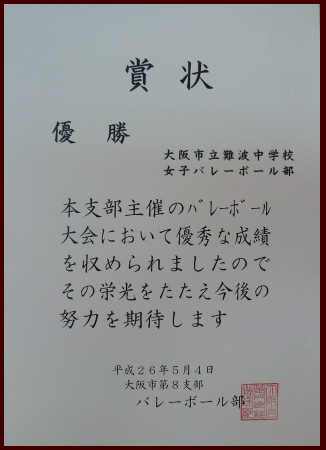 賞状
優勝
大阪市立難波中学校
女子バレーボール部
本支部主催のバレーボール
大会において優秀な成績
を収められましたので
その栄光をたたえ今後の
努力を期待します
平成26年5月4日
大阪市第8支部
バレーボール部